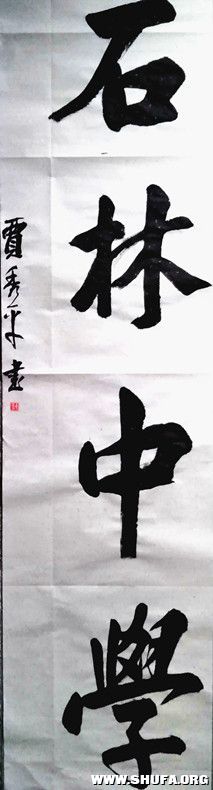 石林中學
賈秀平書
WWW.SHUFA.ORG